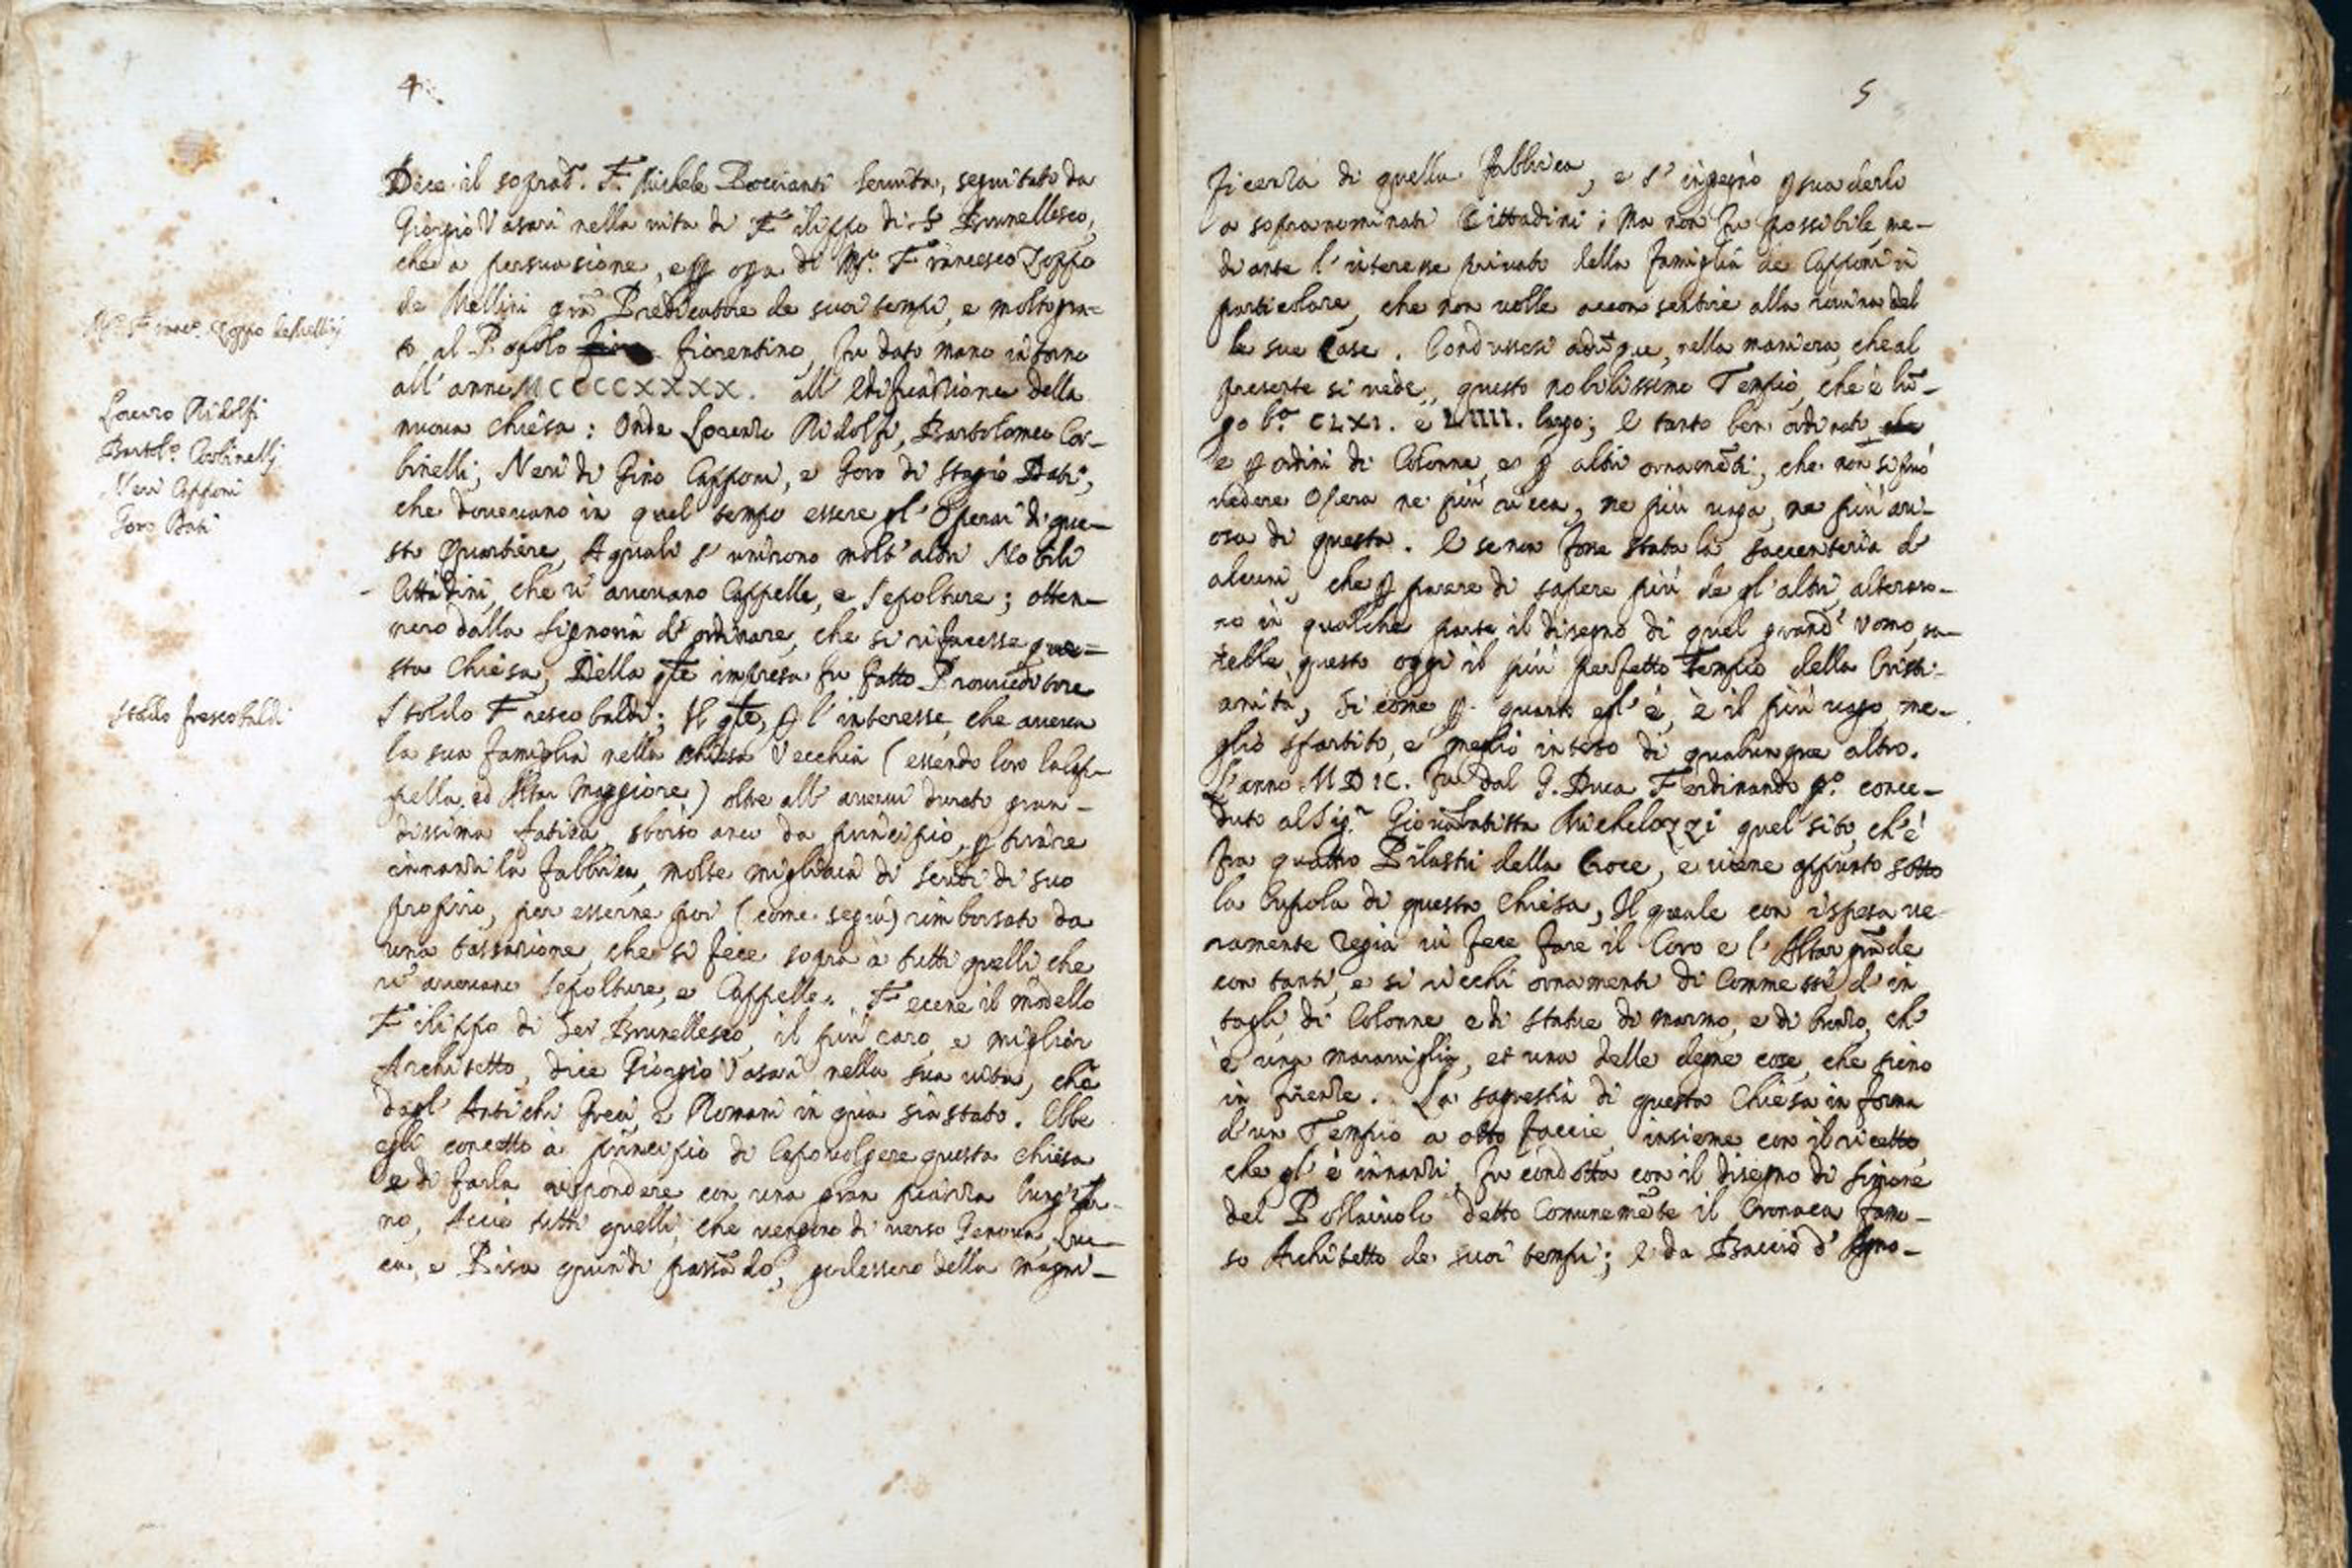 4
Dice il soprad.º F. Michele Boccianti Servita, seguitato da
Giorgio Vasari nella vita di Filippo di S. Brunellesco,
che a persuasione, e ꝑ opa di M.º Francesco Zoppo
de Mellini grã Predicatore de suoi tempi, e molto gra=
to al Popolo fiorentino, fu dato mano intorno
all' anno MCCCCXXXX. all' edificazione della
nuova chiesa: Onde Lorenzo Ridolfi, Bartolomeo Cor-
binelli, Neri di Gino Capponi, e Goro di Stagio Dati,
che dovevano in quel tempo essere gl' Operai di que-
sto Quartiere, A quali s' unirono molt' altri Nobili
Cittadini, che v' avevano Cappelle, e Sepolture; otten-
nero dalla Signoria d' ordinare, che si rifacesse que=
sta chiesa, Della qle impresa fu fatto Proveditore
Stoldo Frescobaldi; Il qle, ꝑ l' interesse, che aveva
la sua famiglia nella chiesa Vecchia (essendo loro la Cap-
pella, ed Altar Maggiore) oltre all' avervi durato gran-
dissima fatica, sborsò anco da principio, ꝑ tirare
innanzi la fabbrica, molte migliaia di scudi di suo
proprio, per esserne poi (come seguì) rimborsato da
una tassazione, che si fece sopra a tutti quelli che
v' avevano Sepolture, e Cappelle. Fecene il modello
Filippo di Ser Brunellesco, il più caro, e miglior
Architetto, dice Giorgio Vasari nella sua vita, che
dagl' Antichi Greci, e Romani in qua sia stato. Ebbe
egli concetto à principio di Capovolgere questa chiesa
e di farla rispondere con una gran piazza lung' Ar-
no, Acciò tutti quelli, che vengono di verso Genova, Luc-
ca, e Pisa quindi passãdo, godessero della magni-
M.º Franc.º Zoppo de Mellini
Lorenzo Ridolfi
Bartol.º Corbinelli
Neri Capponi
Goro Dati
Stoldo frescobaldi
5
ficenza di quella fabbrica, e s' ingegnò ꝑsuaderlo
a sopranominati Cittadini; Ma non fu possibile, me-
diante l' interesse privato della famiglia de Capponi ì
particolare, che non volle acconsentire alla rovina del
le sue Case. Condussesi adũque, nella maniera, che al
presente si vede, questo nobilissimo Tempio, che è lũ-
go b.ª CLXI. e LIIII. largo; e tanto ben ordinato
e ꝑ ordini di Colonne, e ꝑ altri ornamẽti, che non si può
vedere Opera ne più ricca, ne più vaga, ne più ari-
osa di questa. E se non fosse stata la saccenteria d'
alcuni, che ꝑ parere di sapere più de gl' altri, alteraro-
no in qualche parte il disegno di quel grand' Vomo, sa-
rebbe questo oggi il più perfetto Tempio della Cristi-
anità, Si come ꝑ quanto egl' è, è il più vago, me-
glio spartito, e meglio inteso di qualunque altro.
L' anno MDIC. fu dal G. Duca Ferdinando pº. conce-
duto al Sig.r Giovãbatista Michelozzi quel sito, ch' è
fra quattro Pilastri della Croce, e viene appunto sotto
la Cupola di questa chiesa, Il quale con ispesa ve
ramente regia vi fece fare il Coro e l' Altar grãde
con tanti, e si ricchi ornamenti di Commessi, d' in
tagli, di Colonne, e di statue di marmo, e di bronzo, ch'
è una maraviglia, et una delle degne cose, che sieno
in firenze. La sagrestia di questa Chiesa in forma
d' un Tempio a otto faccie, insieme con il ricetto
che gl' è innanzi, fu condotta con il disegno di Simone
del Pollaiuolo detto Comunemẽte il Cronaca famo-
so Architetto de suoi tempi; e da Baccio d' Agno-